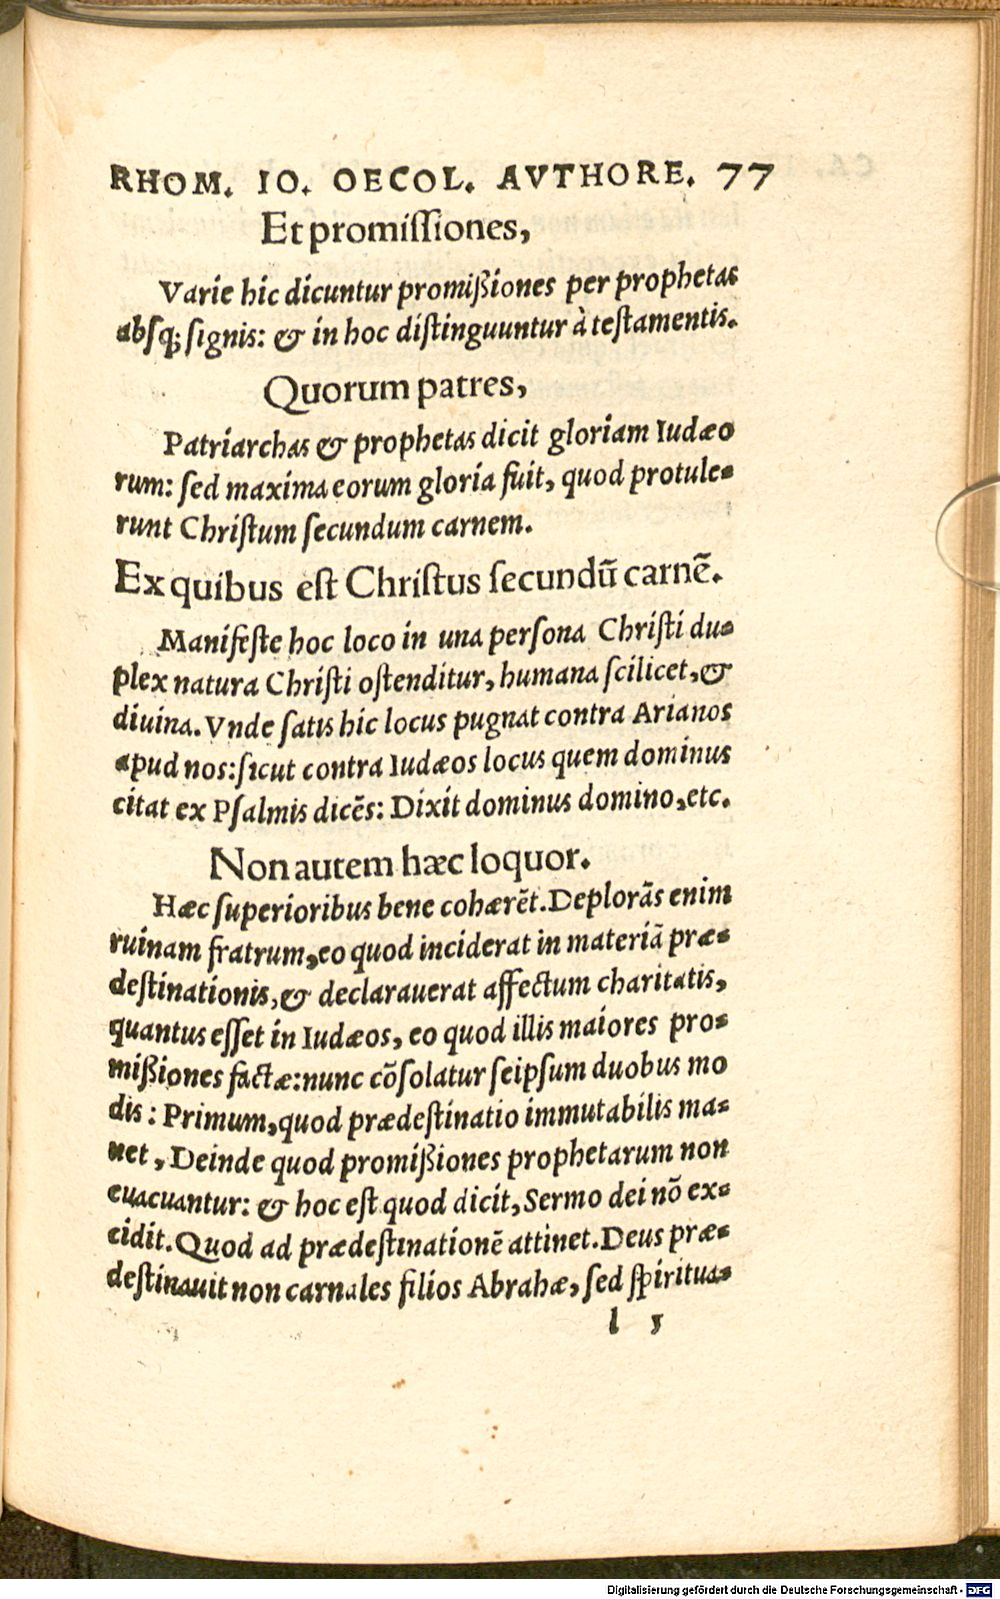 RHOM. IO. OECOL. AVTHORE. 77
Et promissiones,
Varie hic dicuntur promißiones per prophetas
absq; signis: & in hoc distinguuntur à testamentis.
Quorum patres,
Patriarchas & prophetas dicit gloriam Iudæo
rum: sed maxima eorum gloria fuit, quod protule-
runt Christum secundum carnem.
Ex quibus est Christus secundū carnē.
Manifeste hoc loco in una persona Christi du-
plex natura Christi ostenditur, humana scilicet, &
diuina. Vnde satis hic locus pugnat contra Arianos
apud nos: sicut contra Iudæos locus quem dominus
citat ex Psalmis dicēs: Dixit dominus domino, etc.
Non autem hæc loquor.
Hæc superioribus bene cohærēt. Deplorās enim
ruinam fratrum, eo quod inciderat in materiā præ-
destinationis, & declarauerat affectum charitatis,
quantus esset in Iudæos, eo quod illis maiores pro-
mißiones factæ: nunc cōsolatur seipsum duobus mo
dis: Primum, quod prædestinatio immutabilis ma-
net, Deinde quod promißiones prophetarum non
euacuantur: & hoc est quod dicit, Sermo dei nō ex-
cidit. Quod ad prædestinationē attinet. Deus præ-
destinauit non carnales filios Abrahæ, sed spiritua-
l 5
Digitalisierung gefördert durch die Deutsche Forschungsgemeinschaft - DFG